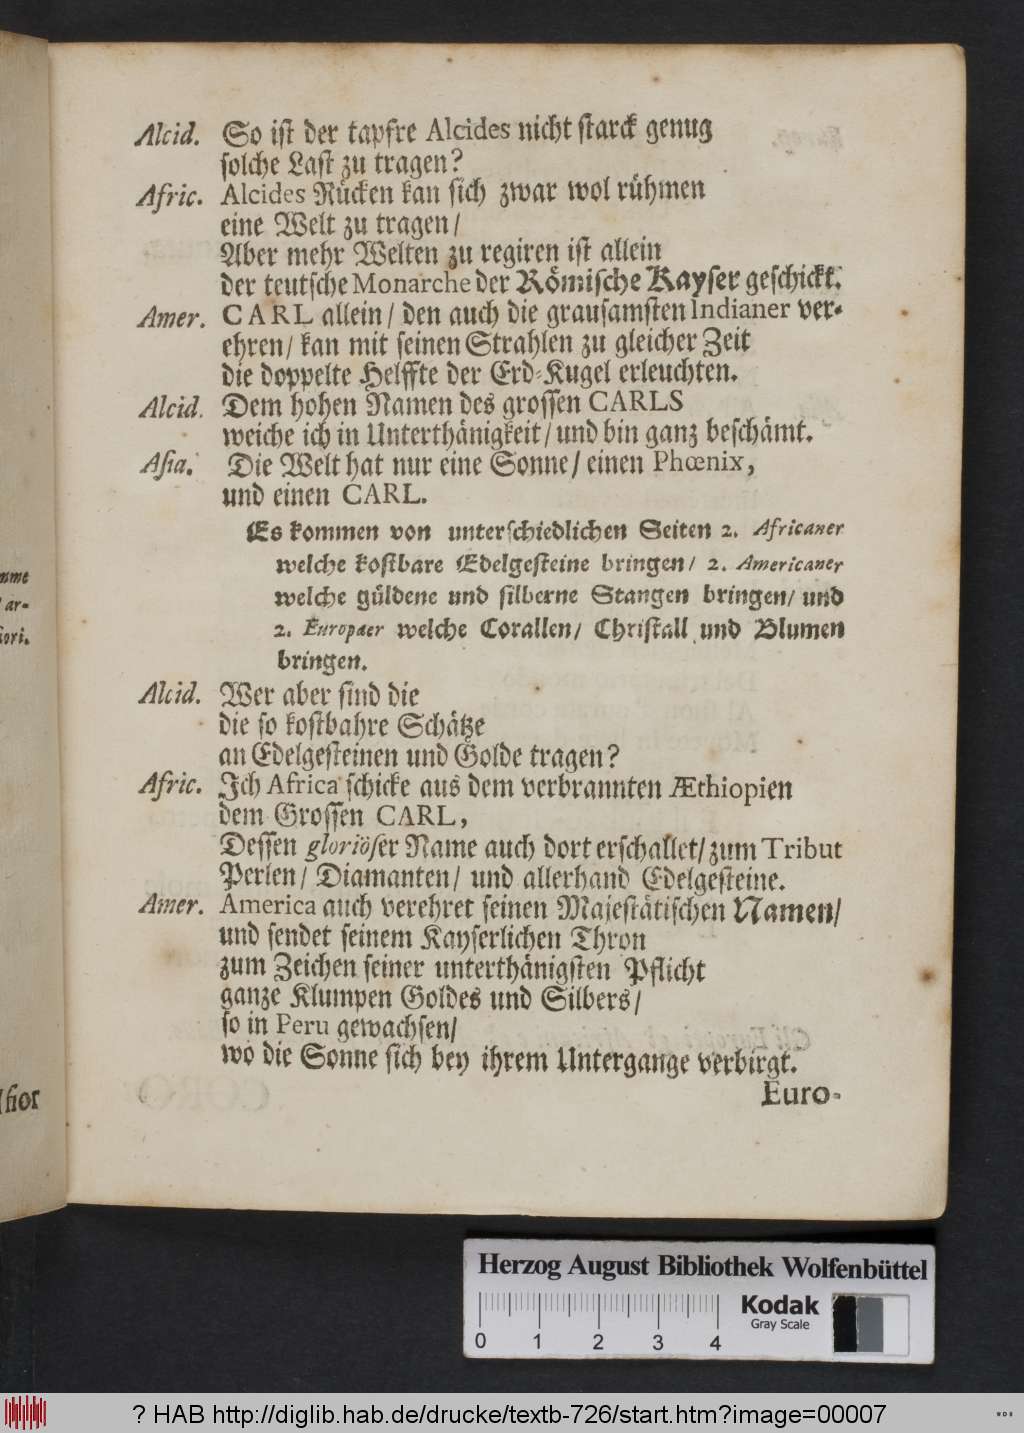 Alcid. So ist der tapfre Alcides nicht starck genug
solche Last zu tragen?
Afric. Alcides Rücken kan sich zwar wol rühmen
eine Welt zu tragen/
Aber mehr Welten zu regiren ist allein
der teutsche Monarche der Römische Kayser geschickt.
Amer. CARL allein/ den auch die grausamsten Indianer ver-
ehren/ kan mit seinen Strahlen zu gleicher Zeit
die doppelte Helffte der Erd-Kugel erleuchten.
Alcid. Dem hohen Namen des grossen CARLS
weiche ich in Unterthänigkeit/ und bin ganz beschämt.
Asia. Die Welt hat nur eine Sonne/ einen Phœnix,
und einen CARL.
Es kommen von unterschiedlichen Seiten 2. Africaner
welche kostbare Edelgesteine bringen/ 2. Americaner
welche güldene und silberne Stangen bringen/ und
2. Europaer welche Corallen/ Christall und Blumen
bringen.
Alcid. Wer aber sind die
die so kostbahre Schätze
an Edelgesteinen und Golde tragen?
Afric. Ich Africa schicke aus dem verbrannten Æthiopien
dem Grossen CARL,
Dessen gloriöser Name auch dort erschallet/ zum Tribut
Perlen/ Diamanten/ und allerhand Edelgesteine.
Amer. America auch verehret seinen Majestätischen Namen/
und sendet seinem Kayserlichen Thron
zum Zeichen seiner unterthänigsten Pflicht
ganze Klumpen Goldes und Silbers/
so in Peru gewachsen/
wo die Sonne sich bey ihrem Untergange verbirgt.
Euro-
Herzog August Bibliothek Wolfenbüttel
Kodak
Gray Scale
0 1 2 3 4
? HAB http://diglib.hab.de/drucke/textb-726/start.htm?image=00007